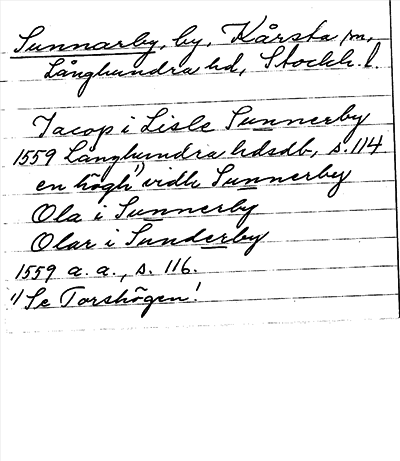 Sunnarby, by, Kårsta sn,
Långhundra hd, Stockh. l.
Jacop i Lisle Sunnerby
1559 Långhundra hdsdb, s. 114
en högh¹⁾ vidh Sunnerby
Ola i Sunnerby
Olar i Sunderby
1559 a. a., s. 116.
¹⁾ Se Torshögen!